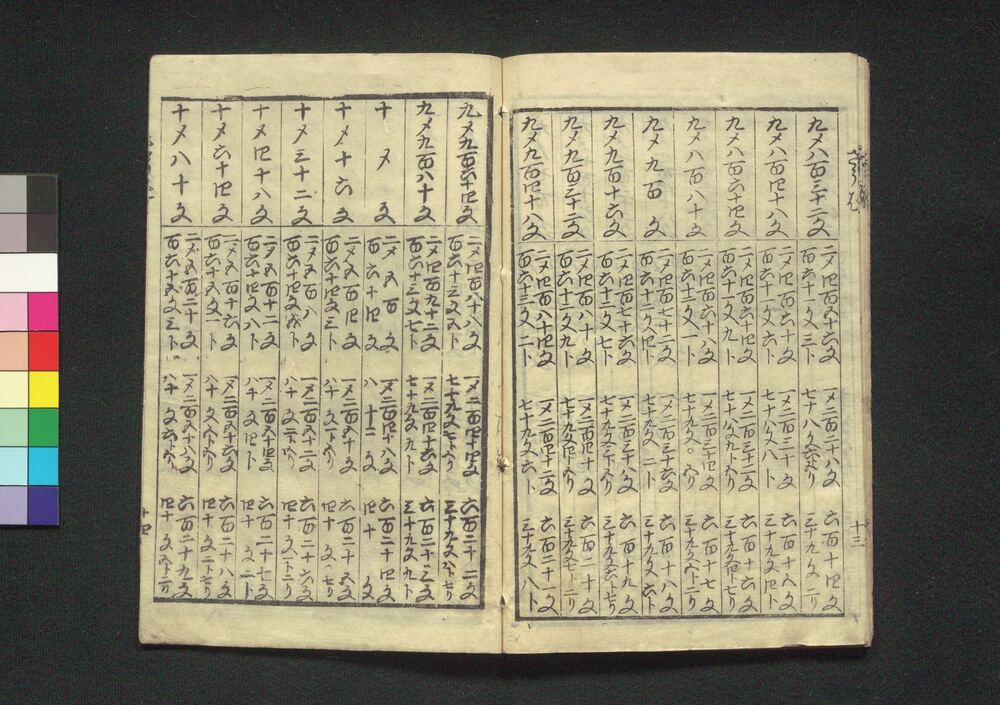 九メ八百三十二文
二メ四百五十六文
百六十一文三ト
一メ二百二十八文
七十八文六ト五り
六百十四文
三十九文三ト二り
九メ八百四十八文
二メ四百六十文
百六十一文六ト
一メ二百三十文
七十八文八ト
六百十五文
三十九文四ト
九メ八百六十四文
二メ四百六十四文
百六十一文九ト
一メ二百三十二文
七十八文九ト五り
六百十六文
三十九文四ト七り
九メ八百八十文
二メ四百六十八文
百六十二文一ト
一メ二百三十四文
七十九文〇五り
六百十七文
三十九文五ト二り
九メ九百文
二メ四百七十二文
百六十二文四ト
一メ二百三十六文
七十九文二ト
六百十八文
三十九文六ト
九メ九百十六文
二メ四百七十六文
百六十二文七ト
一メ二百三十八文
七十九文三ト五り
六百十九文
三十九文六ト七り
九メ九百三十二文
二メ四百八十文
百六十二文九ト
一メ二百四十文
七十九文四ト五り
六百二十文
三十九文七ト二り
九メ九百四十八文
二メ四百八十四文
百六十三文二ト
一メ二百四十二文
七十九文六ト
六百二十一文
三十九文八ト
十三
九メ九百六十四文
二メ四百八十八文
百六十三文五ト
一メ二百四十四文
七十九文七ト五り
六百二十二文
三十九文八ト七り
九メ九百八十文
二メ四百九十二文
百六十三文七ト
一メ二百四十六文
七十九文九ト
六百二十三文
三十九文九ト
十メ文
二メ五百文
百六十四文
一メ二百四十八文
八十二文
六百二十四文
四十文
十メ十六文
二メ五百四文
百六十四文三ト
一メ二百五十文
八十文一ト五り
六百二十五文
四十文八り
十メ三十二文
二メ五百八文
百六十四文五ト
一メ二百五十二文
八十文二ト五り
六百二十六文
四十文一ト二り
十メ四十八文
二メ五百十二文
百六十四文八ト
一メ二百五十四文
八十文四ト
六百二十七文
四十文二ト
十メ六十四文
二メ五百十六文
百六十五文一ト
一メ二百五十六文
八十文五ト五り
六百二十八文
四十文二ト七り
十メ八十文
二メ五百二十文
百六十五文三ト
一メ二百五十八文
八十文六ト五り
六百二十九文
四十文三ト二り
十四